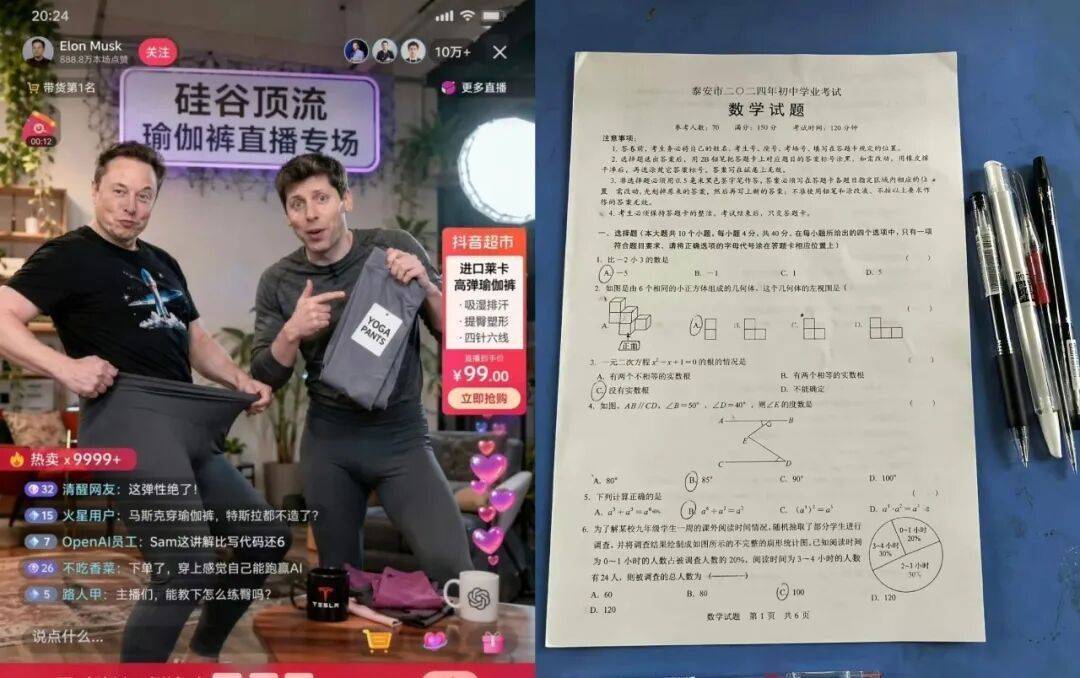 20:24
Elon Musk
888.8万本场点赞
关注
10万+
带货第1名
更多直播
00:12
硅谷顶流
瑜伽裤直播专场
抖音超市
进口莱卡
高弹瑜伽裤
·吸湿排汗
·提臀塑形
·四针六线
直播到手价
¥99.00
立即抢购
YOGA
PANTS
热卖 x9999+
32 清醒网友：这弹性绝了！
15 火星用户：马斯克穿瑜伽裤，特斯拉都不造了？
7 OpenAI员工：Sam这讲解比写代码还6
26 不吃香菜：下单了，穿上感觉自己能跑赢AI
5 路人甲：主播们，能教下怎么练臀吗？
TESLA
说点什么...
泰安市二〇二四年初中学业考试
数学试题
参考人数：70 满分：150分 考试时间：120分钟
注意事项：
1. 答卷前，考生务必将自己的姓名、考生号、座号、考场号，填写在答题卡规定的位置。
2. 选择题选出答案后，用2B铅笔把答题卡上对应题目的答案标号涂黑，如需改动，用橡皮擦
干净后，再选涂其它答案标号。答案写在试卷上无效。
3. 非选择题必须用0.5毫米黑色签字笔作答，答案必须写在答题卡各题目指定区域内相应的位
置
4. 考生必须保持答题卡的整洁。考试结束后，只交答题卡。
一、选择题（本大题共10个小题，每小题4分，共40分，在每小题所给出的四个选项中，只有一项
符合题目要求，请将正确选项的字母代号涂在答题卡相应位置上）
1. 比－2小3的数是 （ ）
A. －5 B. －1 C. 1 D. 5
2. 如图是由6个相同的小正方体组成的几何体，这个几何体的左视图是（ ）
A. A. B. C. D.
正面
3. 一元二次方程x²－x＋1＝0的根的情况是 （ ）
A. 有两个不相等的实数根 B. 有两个相等的实数根
C. 没有实数根 D. 不能确定
4. 如图，AB∥CD，∠B＝50°，∠D＝40°，则∠E的度数是 （ ）
A B
E
C D
A. 80° B. 85° C. 90° D. 100°
5. 下列计算正确的是 （ ）
6. 为了解某校九年级学生一周的课外阅读时间情况，随机抽取了部分学生进行
调查，并将调查结果绘制成如图所示的不完整的扇形统计图，已知阅读时间
为0～1小时的人数占被调查人数的20%，阅读时间为3～4小时的人数
有24人，则被调查的总人数为（ ）
0~1小时
20%
3~4小时
30%
2~3小时
A. 60 B. 80 C. 100 D. 120
D. 120
数学试题 第1页 共6页